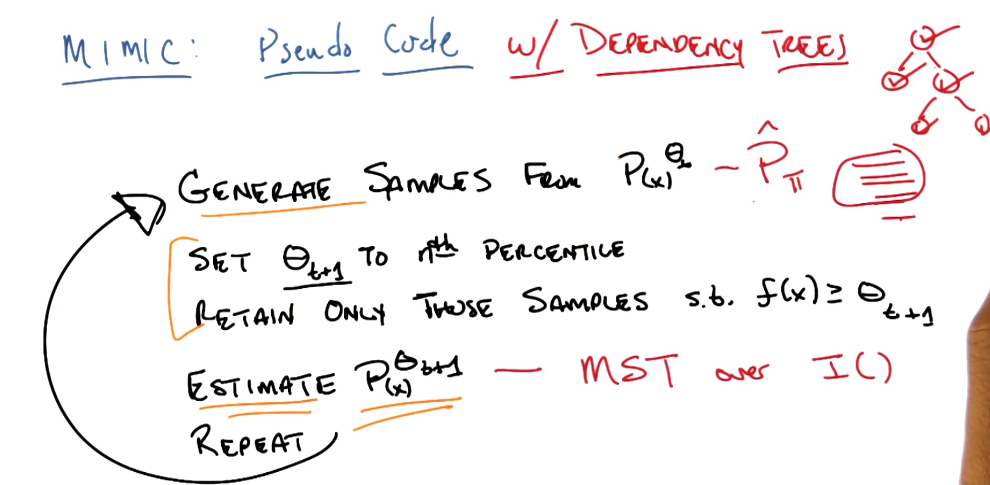 MIMIC: Pseudo Code w/ DEPENDENCY TREES
GENERATE SAMPLES FROM P(x)^θt ~ P̂π
SET θt+1 TO nth PERCENTILE
RETAIN ONLY THOSE SAMPLES s.t. f(x) ≥ θt+1
ESTIMATE P(x)^θt+1 — MST over I()
REPEAT